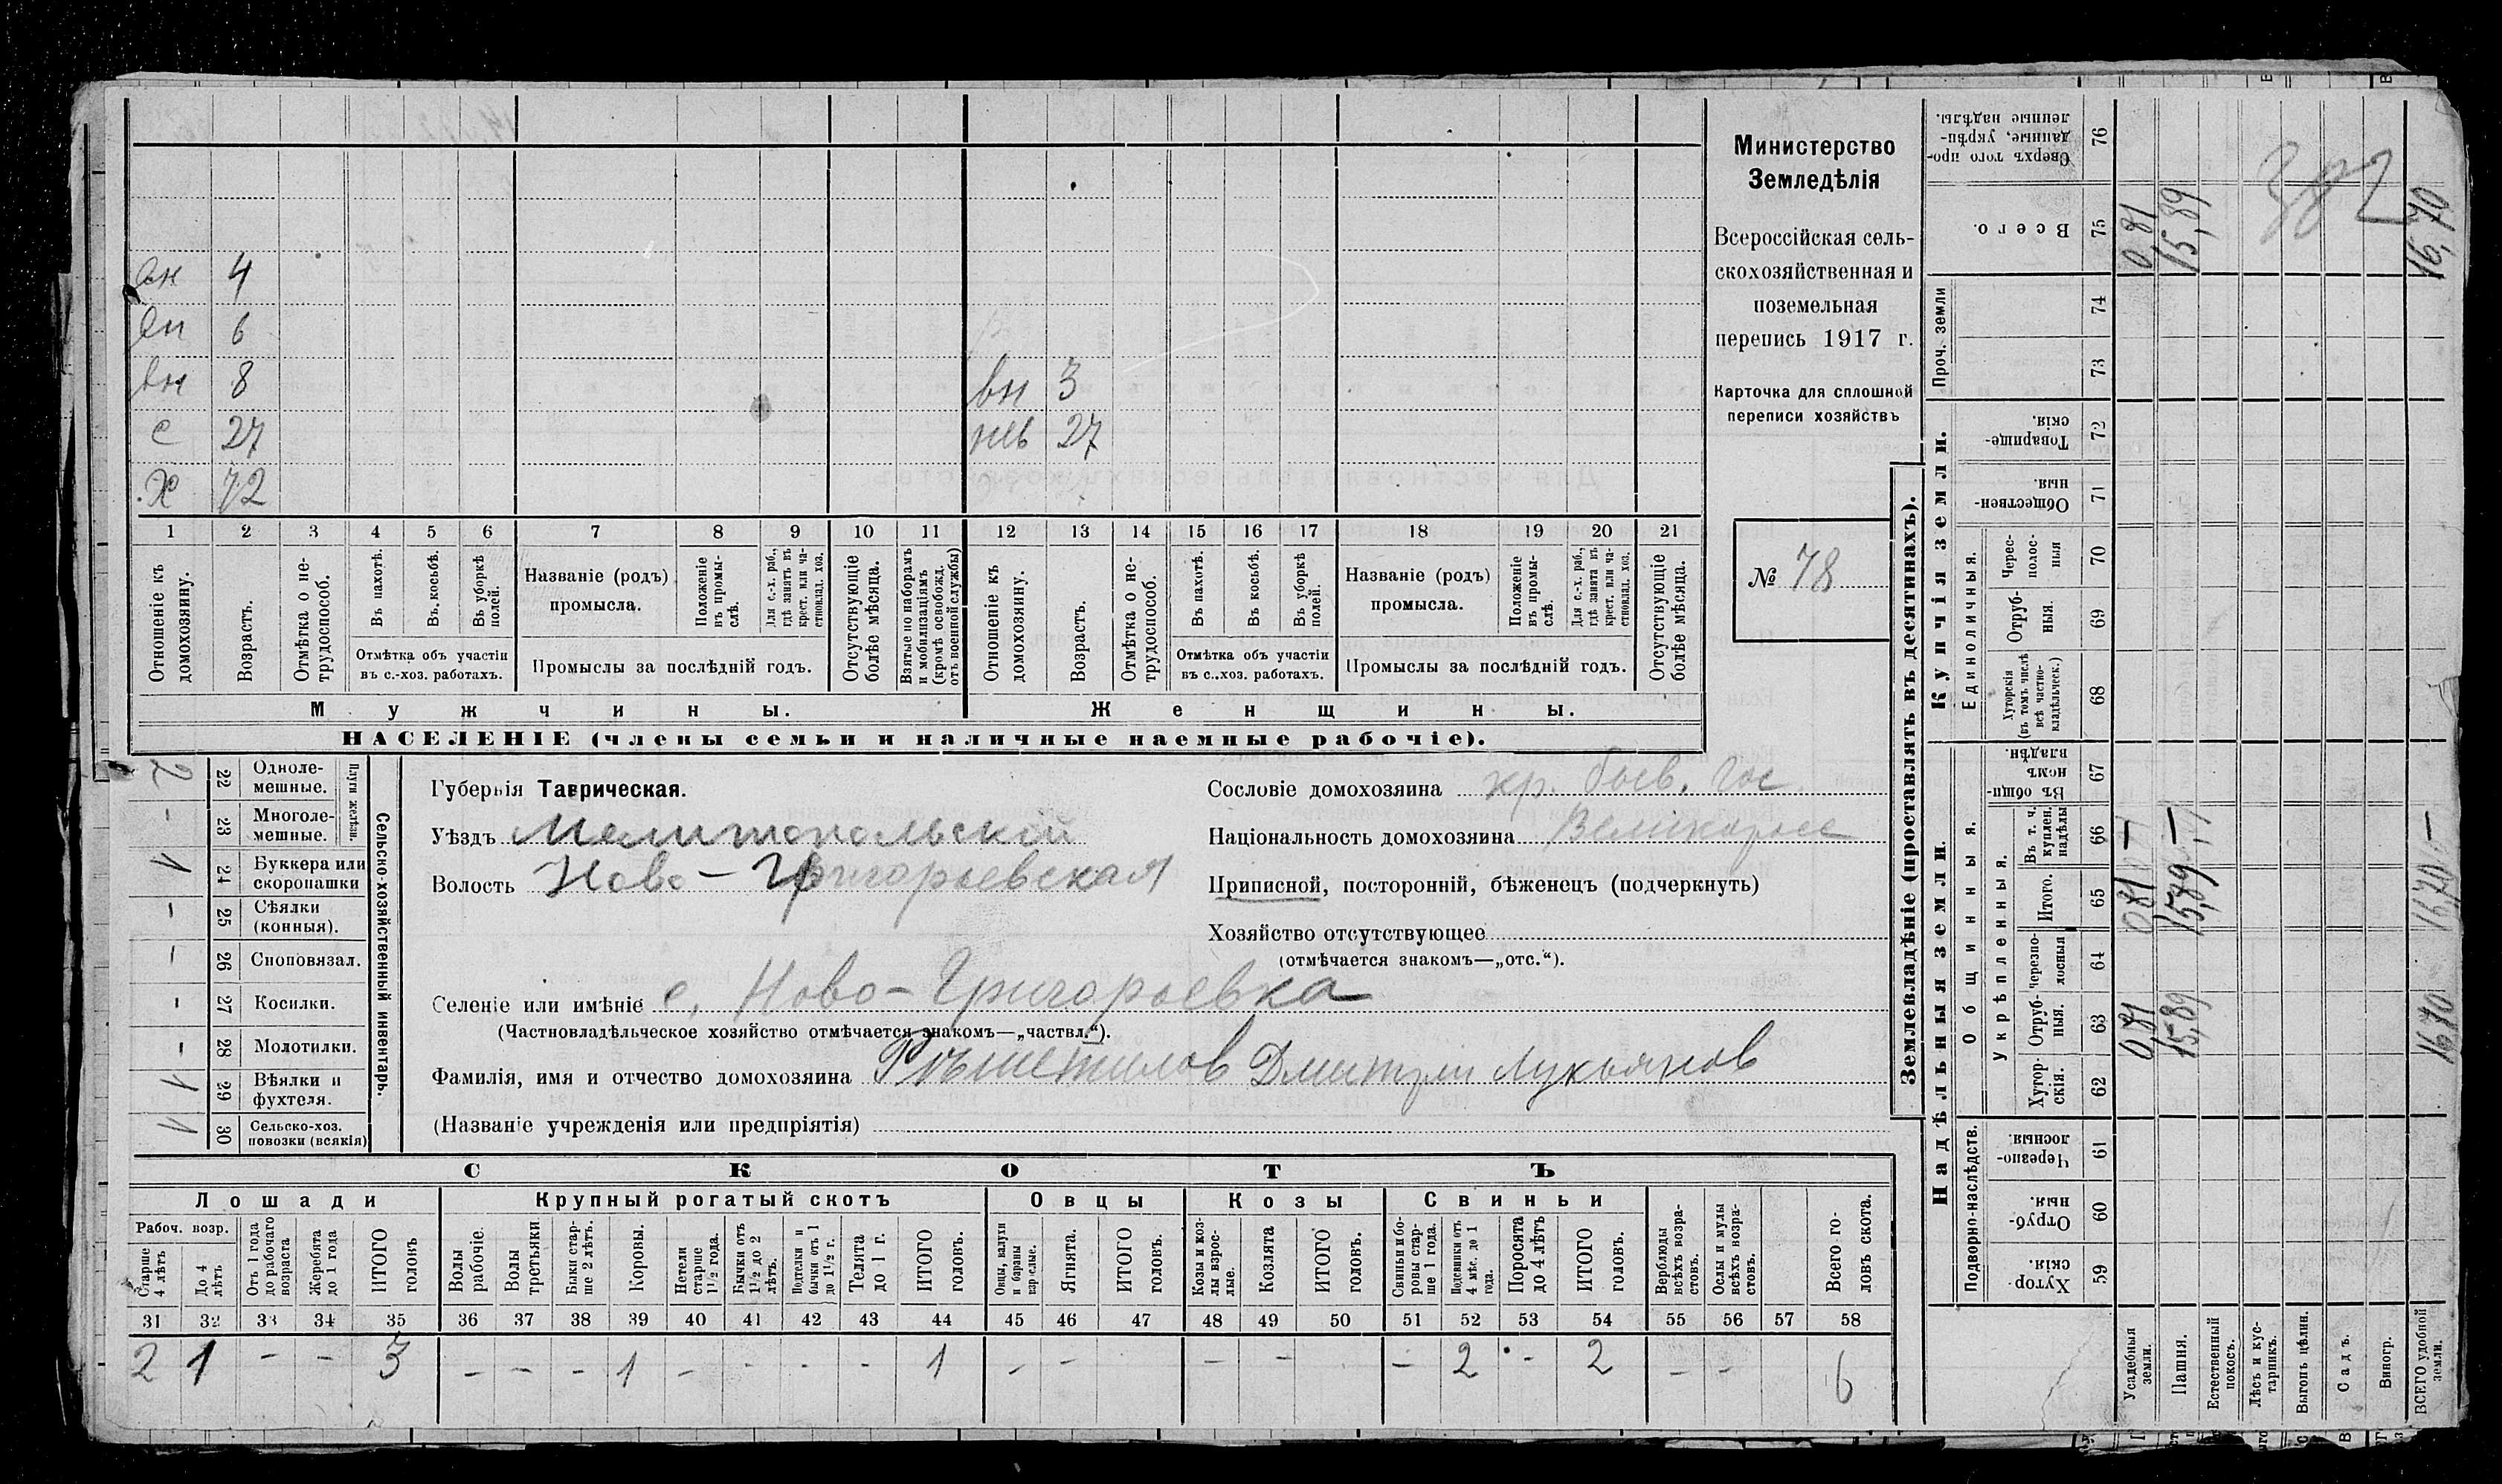 Министерство
Земледѣлія
Всероссійская сель-
скохозяйственная и
поземельная
перепись 1917 г.
Карточка для сплошной
переписи хозяйствъ
№ 78
вн 4
вн 6
вн 8
с 27
х 72
вн 3
нев 27
1 2 3 4 5 6 7 8 9 10 11 12 13 14 15 16 17 18 19 20 21
Отношеніе къ домохозяину.
Возрастъ.
Отмѣтка о не-трудоспособ.
Въ пахотѣ.
Въ косьбѣ.
Въ уборкѣ полей.
Отмѣтка объ участіи
въ с.-хоз. работахъ.
Названіе (родъ)
промысла.
Положеніе въ промы-слѣ.
Для с.-х. раб., гдѣ занятъ въ крест. или ча-стновлад. хоз.
Промыслы за послѣдній годъ.
Отсутствующіе болѣе мѣсяца.
Взятые по наборамъ и мобилизаціямъ (кромѣ освобожд. отъ военной службы)
Отношеніе къ домохозяину.
Возрастъ.
Отмѣтка о не-трудоспособ.
Въ пахотѣ.
Въ косьбѣ.
Въ уборкѣ полей.
Отмѣтка объ участіи
въ с.-хоз. работахъ.
Названіе (родъ)
промысла.
Положеніе въ промы-слѣ.
Для с.-х. раб., гдѣ занята въ крест. или ча-стновлад. хоз.
Промыслы за послѣдній годъ.
Отсутствующіе болѣе мѣсяца.
Мужчины.
Женщины.
НАСЕЛЕНІЕ (члены семьи и наличные наемные рабочіе).
Сельско-хозяйственный инвентарь.
Плуги желѣзн.
2 22 Одноле-мешные.
- 23 Многоле-мешные.
1 24 Буккера или скоропашки
- 25 Сѣялки (конныя).
- 26 Сноповязал.
- 27 Косилки.
- 28 Молотилки.
1 29 Вѣялки и фухтеля.
30 Сельско-хоз. повозки (всякія)
Губернія Таврическая.
Уѣздъ Мелитопольской
Волость Ново-Григорьевская
Селеніе или имѣніе с. Ново-Григорьевка
(Частновладѣльческое хозяйство отмѣчается знакомъ—„частвл.“).
Фамилія, имя и отчество домохозяина Рѣшетилов Дмитрій Лукьянов
(Названіе учрежденія или предпріятія)
Сословіе домохозяина кр. быв. гос
Національность домохозяина Великоросс
Приписной, посторонній, бѣженецъ (подчеркнуть)
Хозяйство отсутствующее
(отмѣчается знакомъ—„отс.“).
СКОТЪ
Лошади
Крупный рогатый скотъ
Овцы
Козы
Свиньи
Рабоч. возр.
Старше 4 лѣтъ
До 4 лѣтъ.
Отъ 1 года до рабочаго возраста
Жеребята до 1 года
ИТОГО головъ
Волы рабочіе.
Волы третьяки
Быки стар-ше 2 лѣтъ.
Коровы.
Нетели старше 1 1/2 года.
Бычки отъ 1 1/2 до 2 лѣтъ.
Подтелки и бычки отъ 1 до 1 1/2 г.
Телята до 1 г.
ИТОГО головъ.
Овцы, валухи и бараны взрослые.
Ягнята.
ИТОГО головъ.
Козы и коз-лы взрос-лые.
Козлята
ИТОГО головъ.
Свиньи и бо-ровы стар-ше 1 года.
Подсвинки отъ 4 мѣс. до 1 года.
Поросята до 4 лѣтъ
ИТОГО головъ.
Верблюды всѣхъ возра-стовъ.
Ослы и мулы всѣхъ возра-стовъ.
Всего го-ловъ скота.
31 32 33 34 35 36 37 38 39 40 41 42 43 44 45 46 47 48 49 50 51 52 53 54 55 56 57 58
2 1 - - 3 - - - 1 - - - - 1 - - - - - 2 - 2 - - 6
Землевладѣніе (проставлять въ десятинахъ).
Надѣльныя земли.
Купчія земли.
Проч. земли
Подворно-наслѣдств.
Общинныя.
Укрѣпленныя.
Единоличныя.
Сверхъ того про-данные, укрѣп-ленные надѣлы. 76
Всего. 75
74
73
Товарище-скія. 72
Обществен-ныя. 71
Черес-полос-ныя 70
Отруб-ныя. 69
Хуторскія (въ томъ числѣ всѣ частно-владѣльческ.) 68
Въ общи-номъ владѣн. 67
Въ т. ч. куплен. надѣлы 66
Итого. 65
Черезпо-лосныя 64
Отруб-ныя. 63
Хутор-скія. 62
Черезпо-лосныя. 61
Отруб-ныя. 60
Хутор-скія. 59
Усадебныя земли. 0,81 0,81 — 0,81
Пашня. 15,89 15,89 — 15,89
Естественный покосъ.
Лѣсъ и кус-тарникъ.
Выгонъ цѣлин.
Садъ.
Виногр.
ВСЕГО удобной земли. 16,70 16,70 — 16,70
382